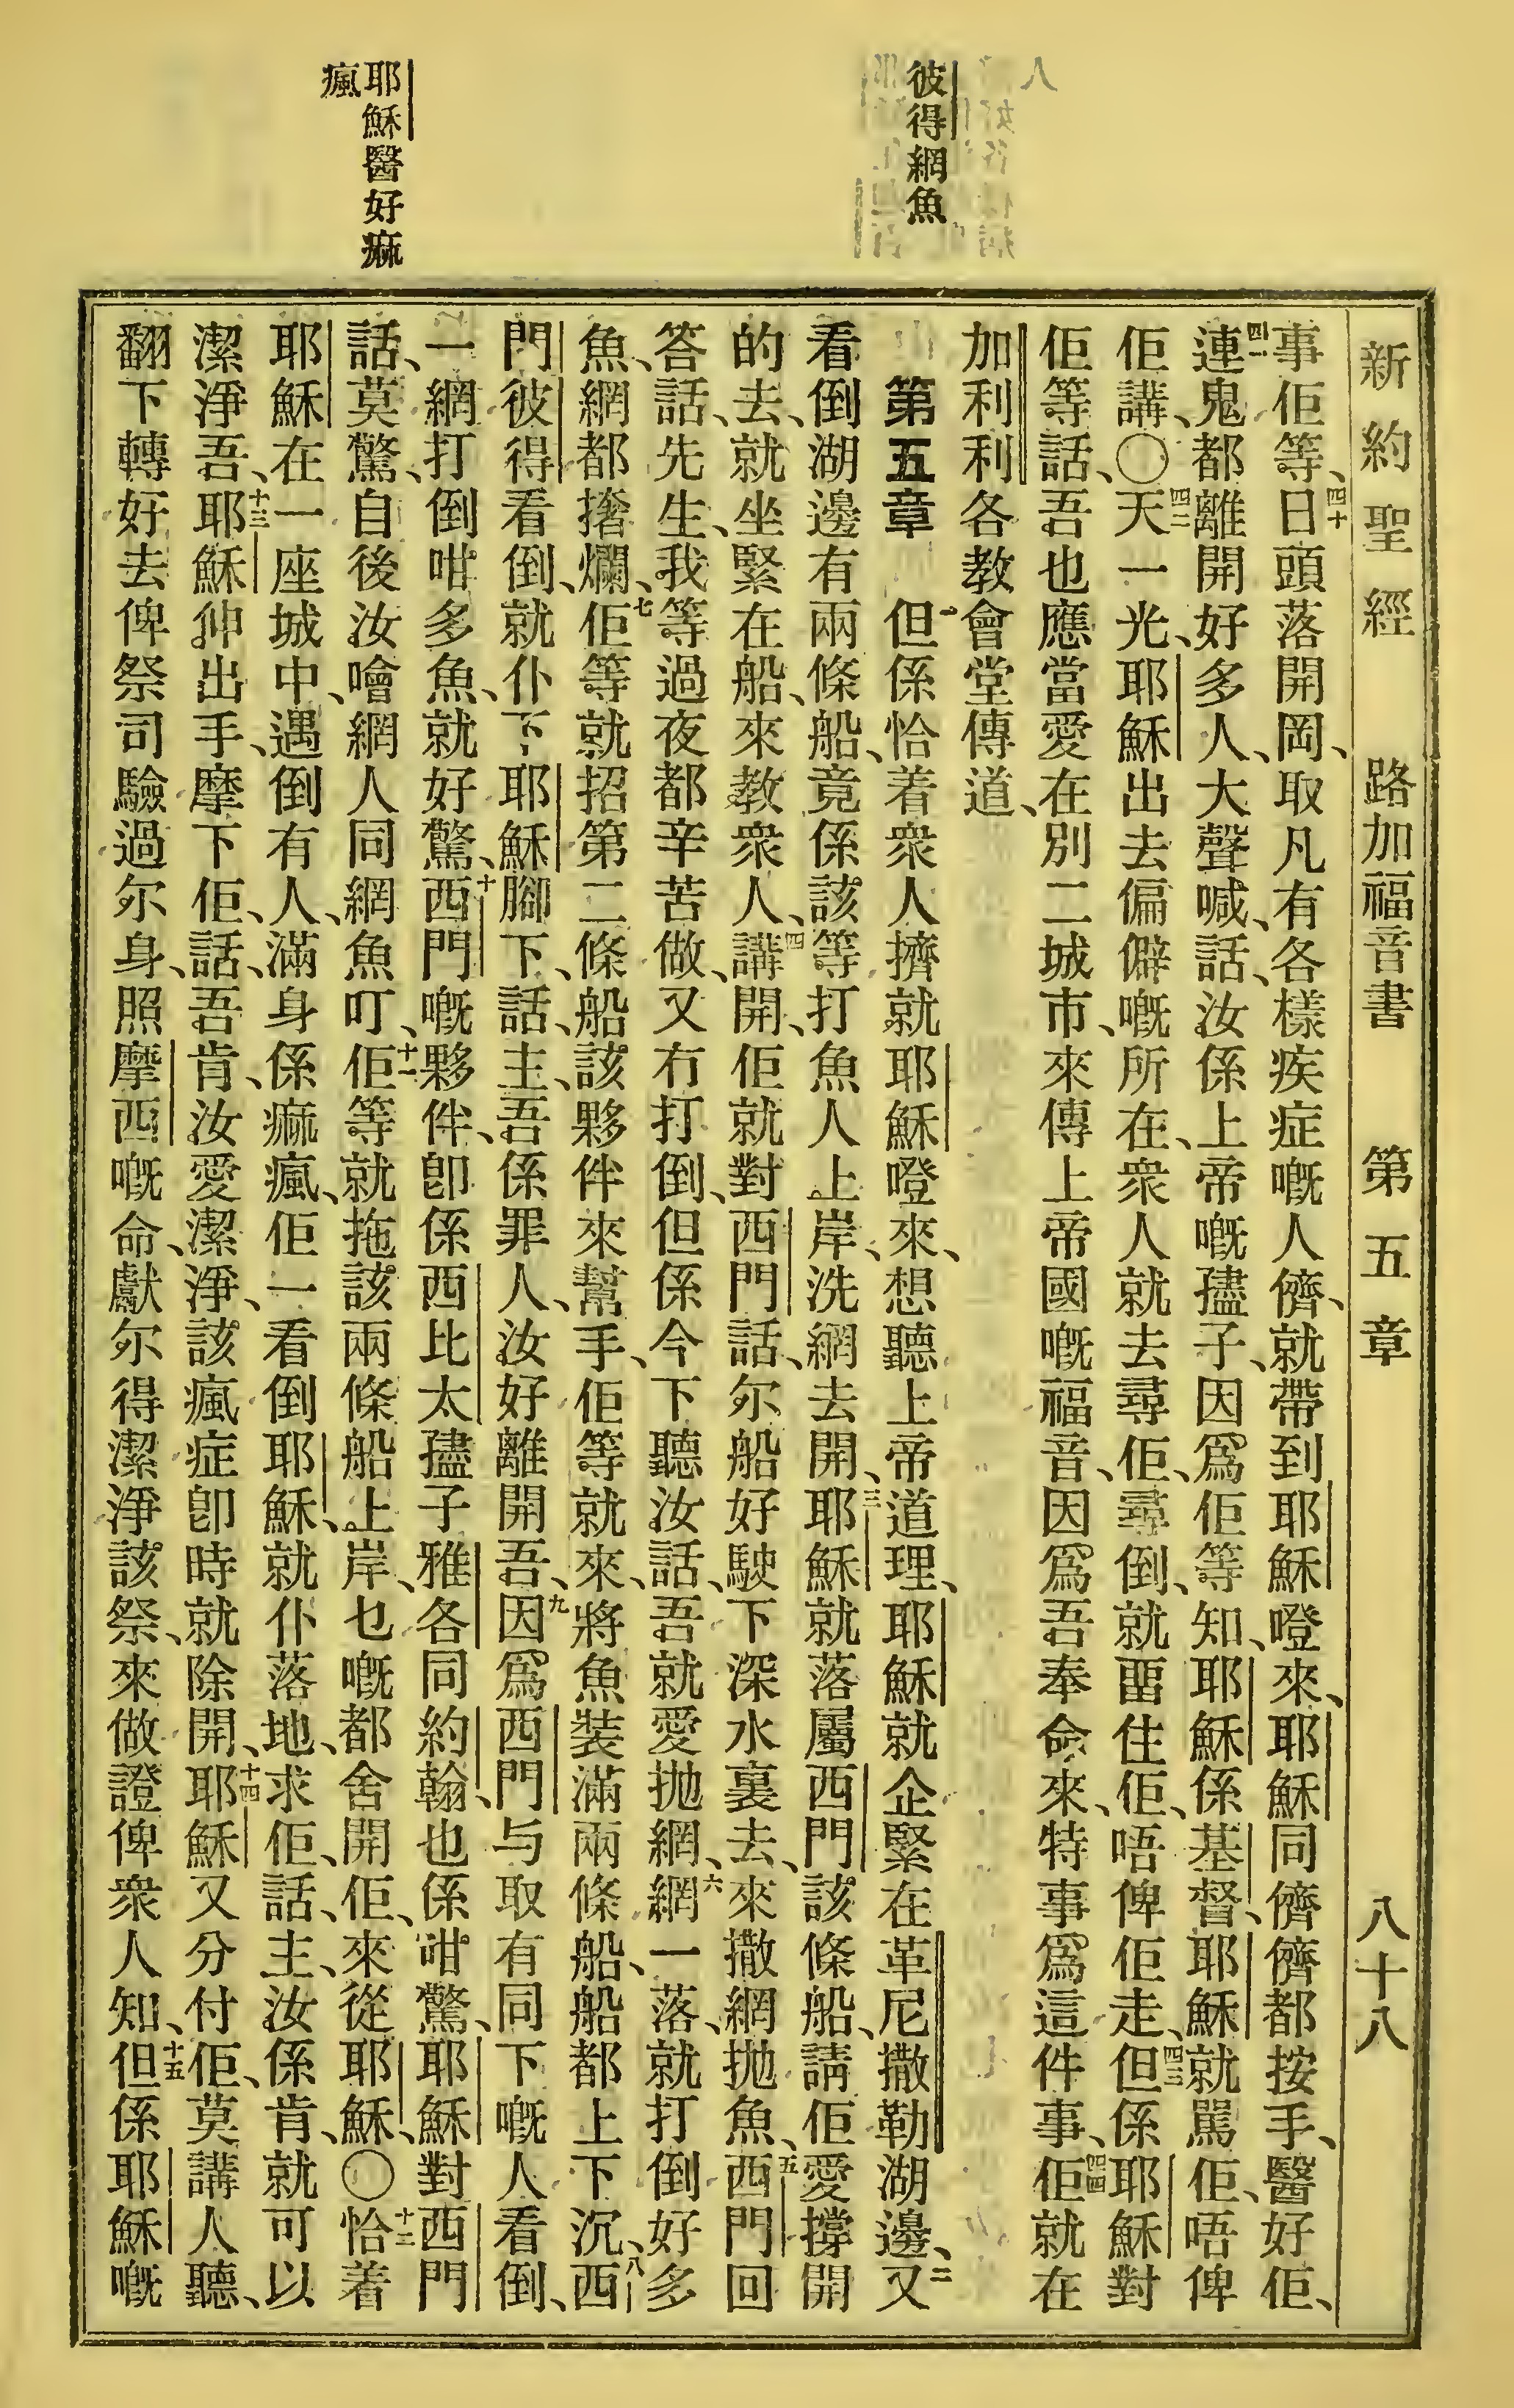 新約聖經 路加福音書 第五章 八十八
彼得網魚
耶穌醫好痲
瘋
事佢等、四十日頭落開岡、取凡有各樣疾症嘅人儕、就帶到耶穌嶝來、耶穌同儕儕都按手、醫好佢、
四一連鬼都離開好多人、大聲喊、話、汝係上帝嘅孻子、因爲佢等知、耶穌係基督、耶穌就駡佢、唔俾
佢講、〇四二天一光、耶穌出去偏僻嘅所在、衆人就去尋佢、尋倒、就畱住佢、唔俾佢走、四三但係耶穌對
佢等話、吾也應當愛在別二城市、來傳上帝國嘅福音、因爲吾奉命來、特事爲這件事、四四佢就在
加利利各教會堂傳道、
第五章 一但係恰着衆人擠就耶穌嶝來、想聽上帝道理、耶穌就企緊在革尼撒勒湖邊、二又
看倒湖邊有兩條船、竟係該等打魚人上岸、洗網去開、三耶穌就落屬西門該條船、請佢愛撐開
的去、就坐緊在船、來教衆人、四講開、佢就對西門話、尔船好駛下深水裏去、來撒網抛魚、五西門回
答話、先生、我等過夜都辛苦做、又冇打倒、但係今下聽汝話、吾就愛抛網、六網一落、就打倒好多
魚、網都㩼爛、七佢等就招第二條船該夥伴來幫手、佢等就來、將魚裝滿兩條船、船都上下沉、八西
門彼得看倒、就仆下耶穌腳下、話、主、吾係罪人、汝好離開吾、九因爲西門与取有同下嘅人看倒、
一網打倒咁多魚、就好驚、十西門嘅夥伴、卽係西比太孻子雅各同約翰、也係咁驚、耶穌對西門
話、莫驚、自後汝噲網人同網魚叮、十一佢等就拖該兩條船上岸、乜嘅都舍開佢、來從耶穌、〇十二恰着
耶穌在一座城中、遇倒有人、滿身係痲瘋、佢一看倒耶穌、就仆落地、求佢、話、主、汝係肯、就可以
潔淨吾、十三耶穌伸出手、摩下佢、話、吾肯、汝愛潔淨、該瘋症卽時就除開、十四耶穌又分付佢、莫講人聽、
翻下轉好去俾祭司驗過尔身、照摩西嘅命、獻尔得潔淨該祭、來做證俾衆人知、十五但係耶穌嘅